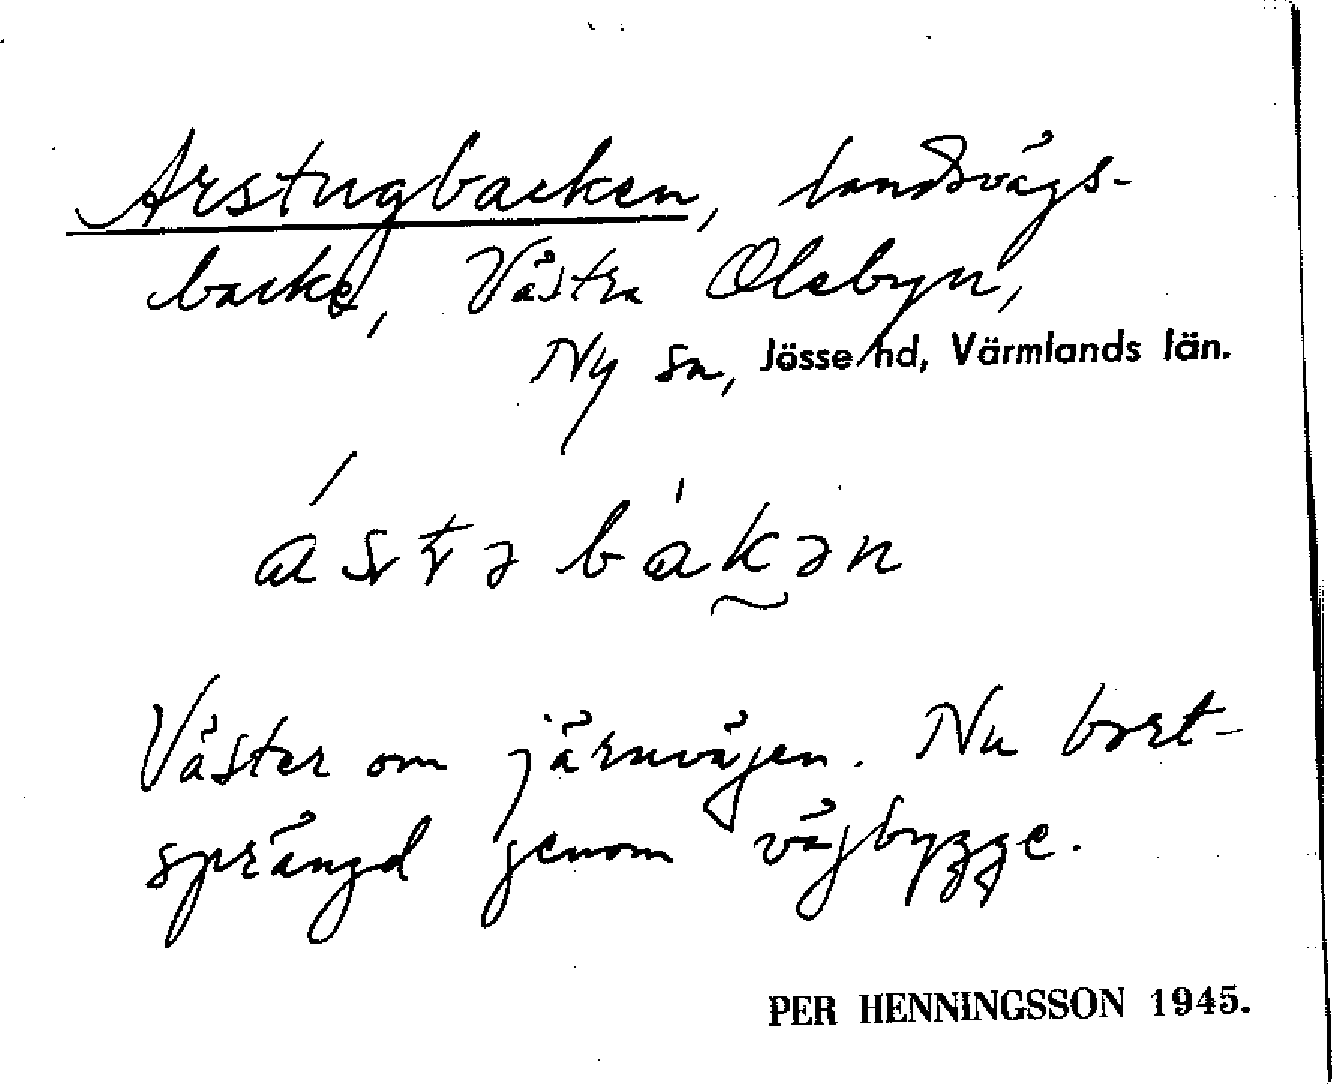 Arstugbacken, landsvägs-
backe, Västra Olsbyn,
Ny sn, Jösse hd, Värmlands län.
Väster om järnvägen. Nu bort-
sprängd genom vägbygge.
PER HENNINGSSON 1945.